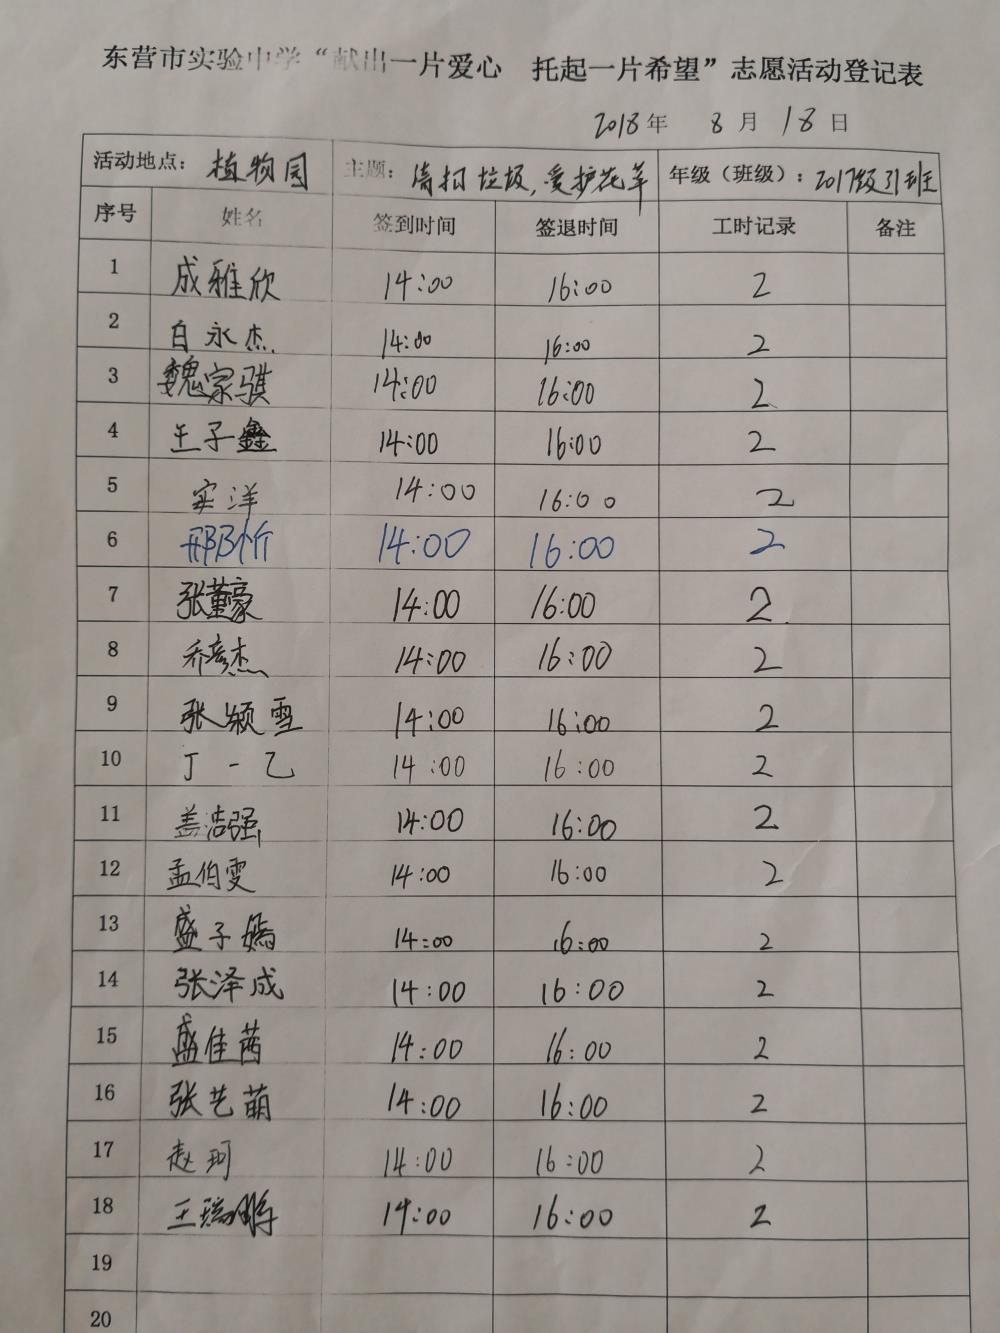 东营市实验中学“献出一片爱心 托起一片希望”志愿活动登记表
2018年 8月18日
活动地点：植物园 主题：清扫垃圾，爱护花草 年级（班级）：2017级31班
序号 姓名 签到时间 签退时间 工时记录 备注
1 成雅欣 14:00 16:00 2
2 白永杰 14:00 16:00 2
3 魏家骐 14:00 16:00 2
4 王子鑫 14:00 16:00 2
5 实洋 14:00 16:00 2
6 邢忻 14:00 16:00 2
7 张董豪 14:00 16:00 2
8 乔彦杰 14:00 16:00 2
9 张颖雪 14:00 16:00 2
10 丁一乙 14:00 16:00 2
11 盖洁强 14:00 16:00 2
12 孟伯雯 14:00 16:00 2
13 盛子嫣 14:00 16:00 2
14 张泽成 14:00 16:00 2
15 盛佳茜 14:00 16:00 2
16 张艺萌 14:00 16:00 2
17 赵珂 14:00 16:00 2
18 王瑞鹏 14:00 16:00 2
19
20